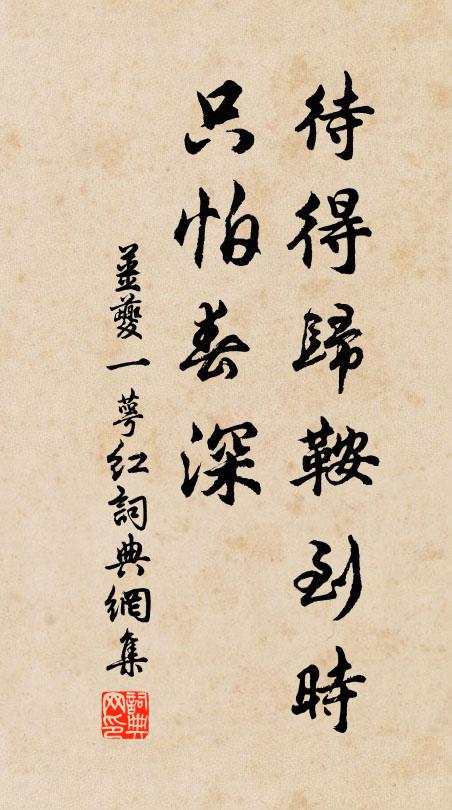 待得歸鞍到時
只怕春深
姜夔一萼紅詞典網集
詞典网印